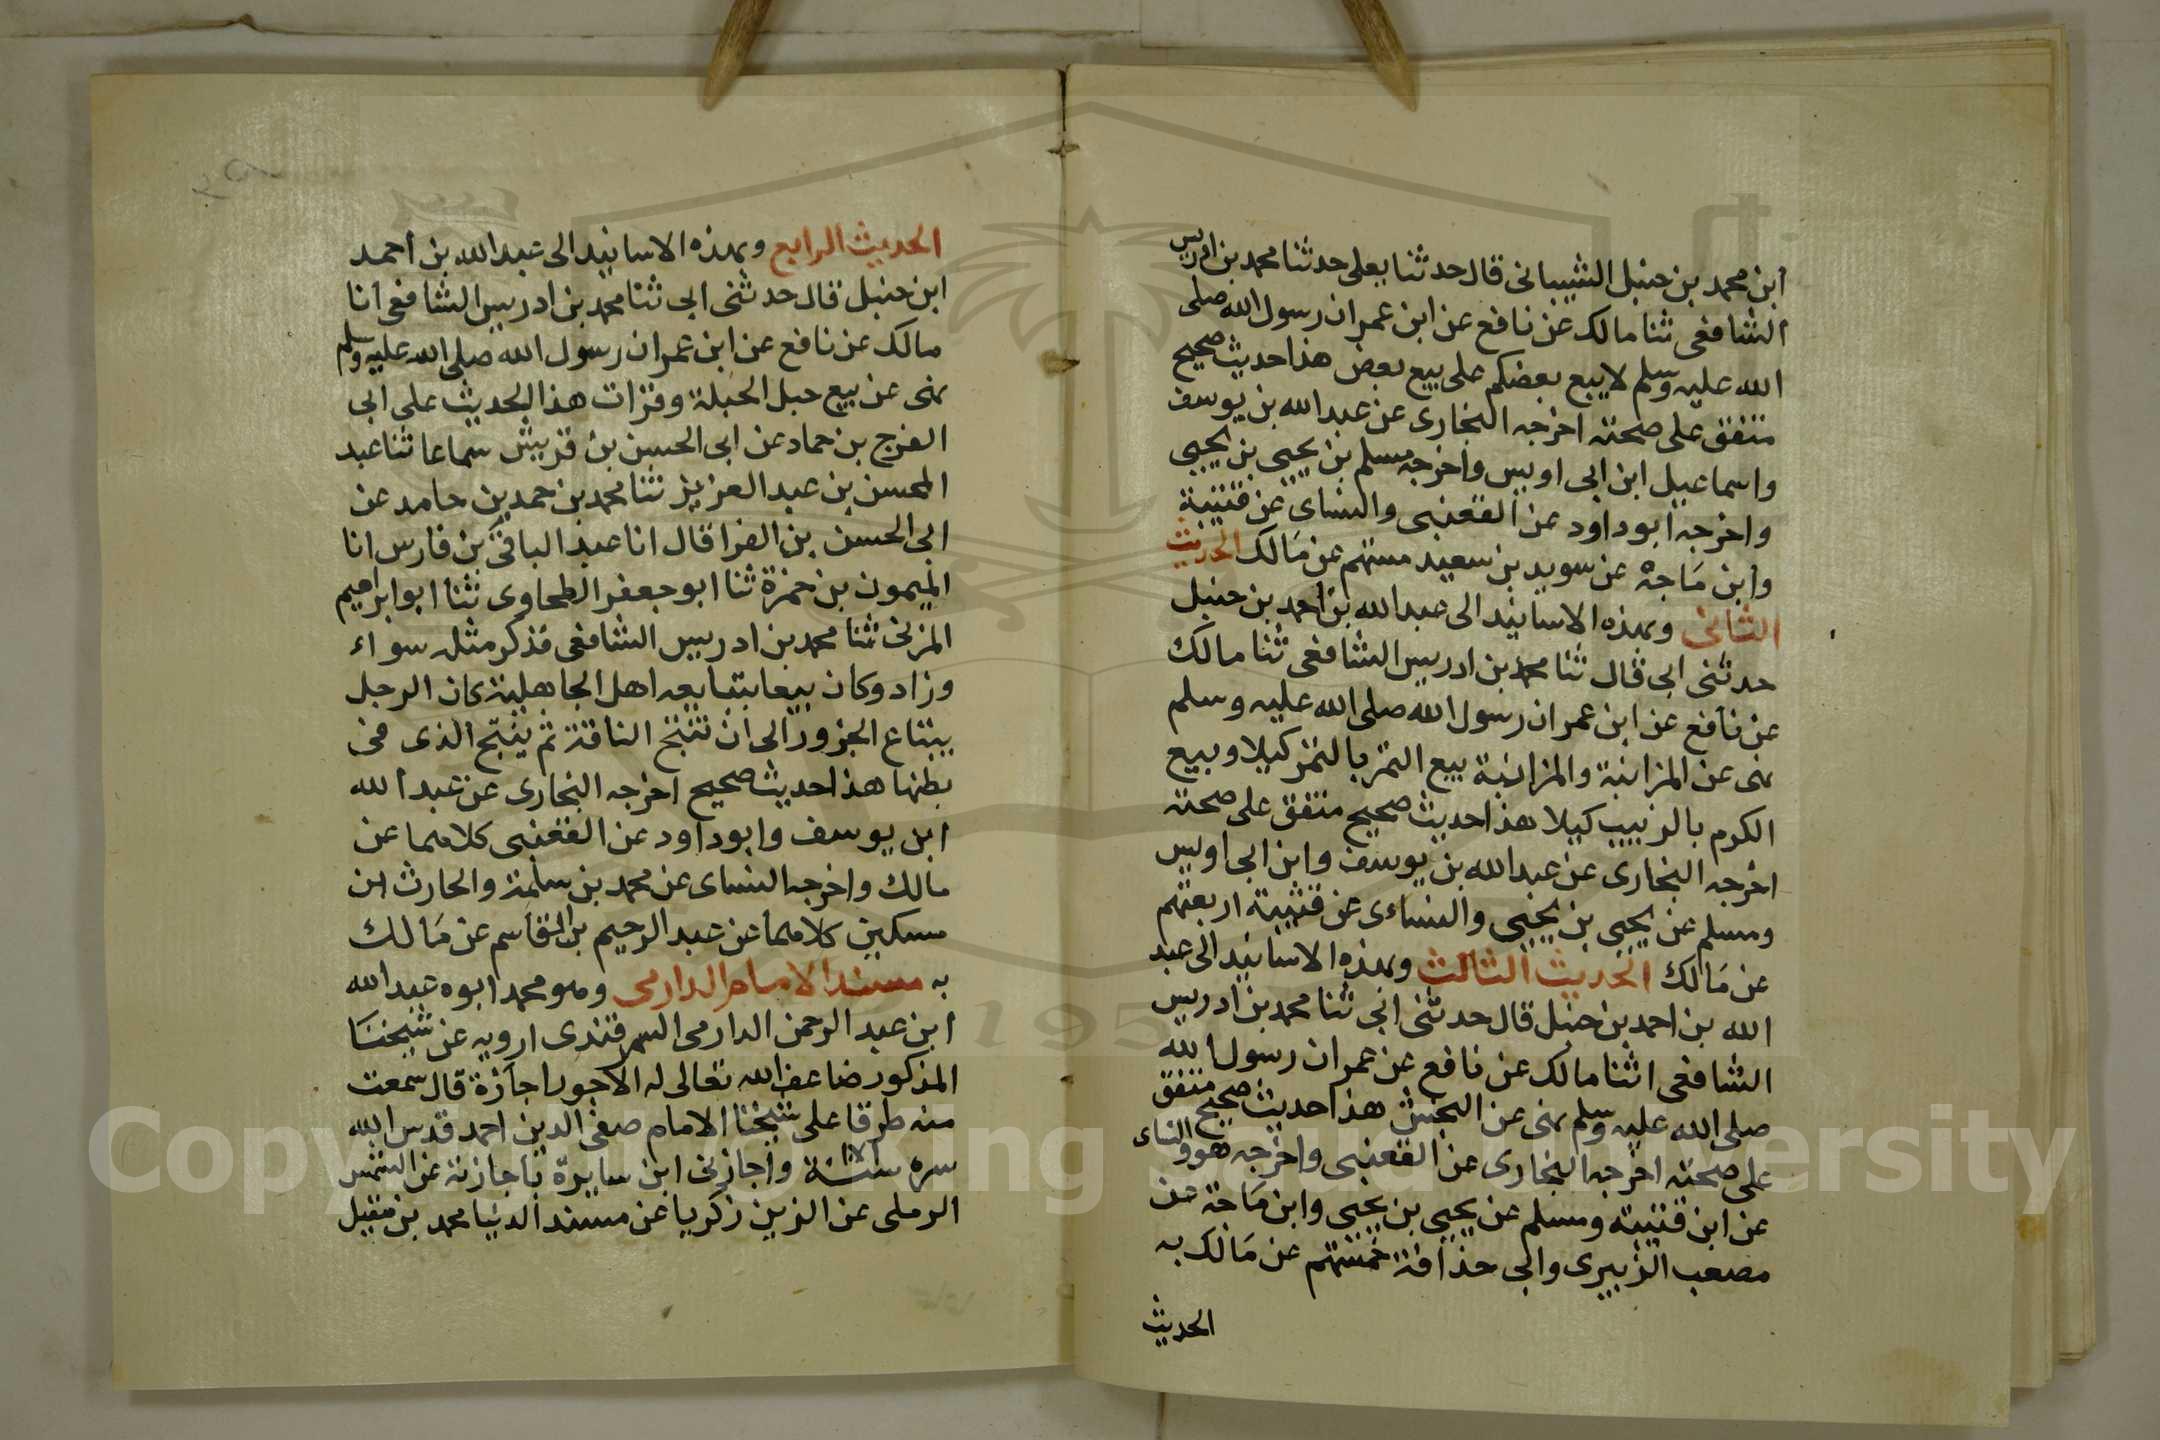 ابن محمد بن حنبل الشيبانى قال حدثنا يعلى حدثنا محمد بن ادريس
الشافعى ثنا مالك عن نافع عن ابن عمر ان رسول الله صلى
الله عليه وسلم لا يبيع بعضكم على بيع بعض هذا حديث صحيح
متفق على صحته اخرجه البخارى عن عبد الله بن يوسف
واسماعيل ابن ابى اويس واخرجه مسلم بن يحيى بن يحيى
واخرجه ابو داود عن القعنبى والنساى عن قتيبة
وابن مَاجة عن سويد بن سعيد ستتهم عن مَالك الحديث
الثانى وبهذه الاسانيد الى عبد الله بن احمد بن حنبل
حدثنى ابى قال ثنا محمد بن ادريس الشافعى ثنا مالك
عن نافع عن ابن عمر ان رسول الله صلى الله عليه وسلم
نهى عن المزابنة والمزابنة بيع التمر بالتمر كيلا وبيع
الكرم بالزبيب كيلا هذا حديث صحيح متفق على صحته
اخرجه البخارى عن عبد الله بن يوسف وابن ابى اويس
ومسلم عن يحيى بن يحيى والنساءى عن قتيبة اربعتهم
عن مَالك الحديث الثالث وبهذه الاسانيد الى عبد
الله بن احمد بن حنبل قال حدثنى ابى ثنا محمد بن ادريس
الشافعى انثنا مالك عن نافع عن عمر ان رسول الله
صلى الله عليه وسلم نهى عن النجش هذا حديث صحيح متفق
على صحته اخرجه البخارى عن القعنبى واخرجه هو والنساء
عن ابن قتيبة ومسلم عن يحيى بن يحيى وابن مَاجة عن
مصعب الزبيرى وابى حذافة خمستهم عن مَالك به
الحديث
الحديث الرابع وبهذه الاسانيد الى عبد الله بن احمد
ابن حنبل قال حدثنى ابى ثنا محمد بن ادريس الشافعى انا
مالك عن نافع عن ابن عمر ان رسول الله صلى الله عليه وسلم
نهى عن بيع حبل الحبلة وقرات هذا الحديث على ابى
الفرج بن حماد عن ابى الحسن بن قريش سماعا ثنا عبد
المحسن بن عبد العزيز ثنا محمد بن حمد بن حامد عن
ابى الحسن بن الفرا قال انا عبد الباقى بن فارس انا
الميمون بن حمزة ثنا ابو جعفر الطحاوى ثنا ابو ابراهيم
المزنى ثنا محمد بن ادريس الشافعى فذكر مثله سواء
وزاد وكان بيعا يتبايعه اهل الجاهلية كان الرجل
يبتاع الجزور الى ان تنتج الناقة ثم ينتج الذى فى
بطنها هذا حديث صحيح اخرجه البخارى عن عبد الله
ابن يوسف وابو داود عن القعنبى كلاهما عن
مالك واخرجه النساى عن محمد بن سلمة والحارث ابن
مسكين كلاهما عن عبد الرحيم بن القاسم عن مَالك
به مسند الامام الدارمى وهو محمد ابوه عبد الله
ابن عبد الرحمن الدارمى السمرقندى ارويه عن شيخنا
المذكور ضاعف الله تعالى له الاجور اجازة قال سمعت
منه طرفا على شيخنا الامام صفى الدين احمد قدس الله
سره سنة واجازنى ابن باجازته عن الشمس
الرملى عن الزين زكريا عن مسند الدنيا محمد بن مقبل
Copyright © King Saud University
195